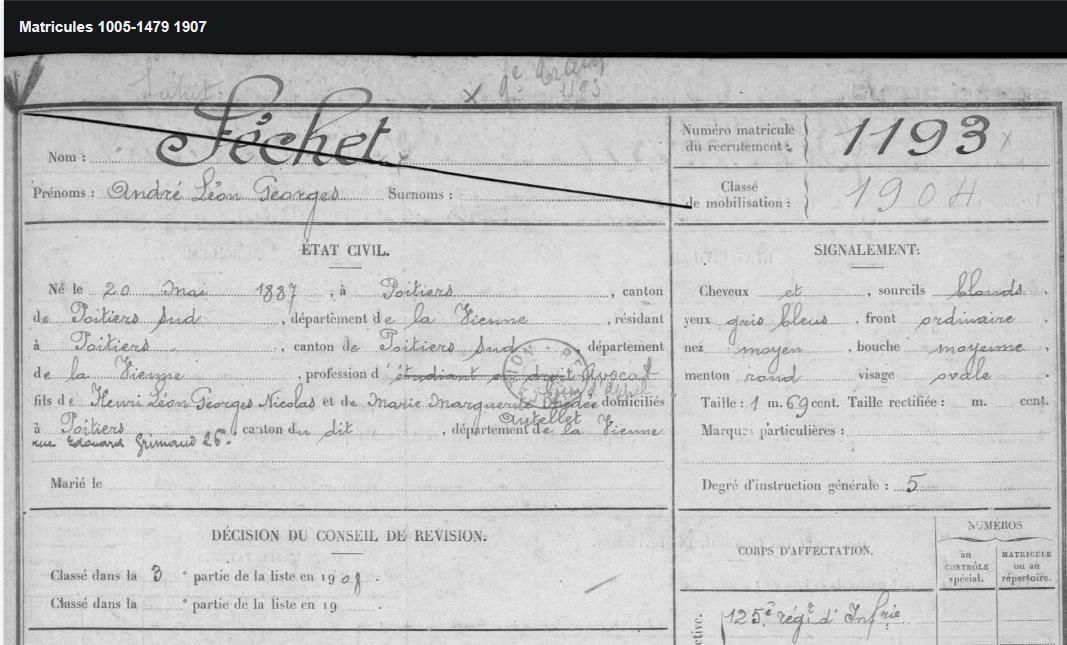 Matricules 1005-1479 1907
1193
Nom : Féchet
Numéro matricule
du recrutement : 1193
Prénoms : André Léon Georges Surnoms :
Classe
de mobilisation : 1904
ÉTAT CIVIL.
Né le 20 mai 1887, à Poitiers, canton
de Poitiers Sud, département de la Vienne, résidant
à Poitiers, canton de Poitiers Sud, département
de la Vienne, profession d'étudiant en droit Avocat
fils de Henri Léon Georges Nicolas et de Marie Marguerite domiciliés
à Poitiers canton du dit, département de la Vienne
rue Edouard Grimaud 26.
Marié le
SIGNALEMENT:
Cheveux et, sourcils blonds,
yeux gris bleus, front ordinaire
nez moyen, bouche moyenne
menton rond visage ovale
Taille : 1 m. 69 cent. Taille rectifiée : m. cent.
Marques particulières :
Degré d'instruction générale : 5
DÉCISION DU CONSEIL DE REVISION.
Classé dans la 3e partie de la liste en 1908.
Classé dans la e partie de la liste en 19 .
CORPS D'AFFECTATION.
NUMÉROS
au
CONTRÔLE
spécial.
MATRICULE
ou au
répertoire.
125e régt d'Infrie